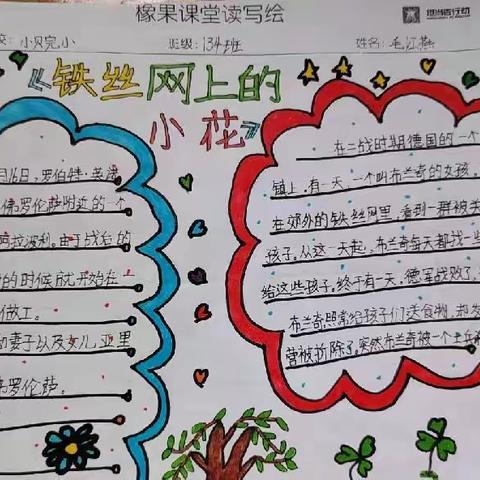 橡果课堂读写绘
担当者行动
小贝完小
班级: 134班
姓名: 毛江燕
《铁丝网上的
小花》
月16日,罗伯特·英诺
佛罗伦萨附近的一个
阿拉波利。由于战后的
的时候就开始在
做工。
妻子以及女儿,亚里
佛罗伦萨。
在二战时期德国的一个
镇上,有一天,一个叫布兰奇的女孩,
在郊外的铁丝网里,看到一群被关
孩子,从这一天起,布兰奇每天都找一些
给这些孩子。终于有一天,德军战败了,
布兰奇照常给孩子们送食物,却发
营被拆除了,突然布兰奇被一个士兵